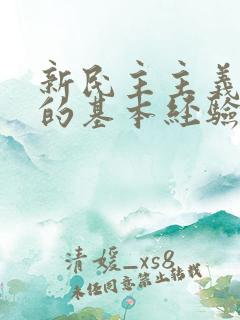 新民主主义
的基本经验
清媛_xs8
未经同意禁止转载